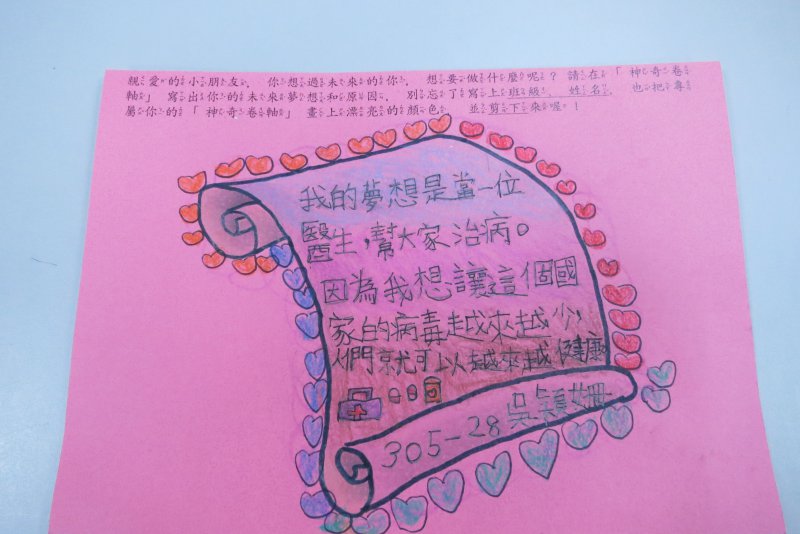 親愛的小朋友, 你想過未來的你, 想要做什麼呢? 請在「神奇卷
軸」 寫出你的未來夢想和原因, 別忘了寫上班級、姓名, 也把專
屬你的「神奇卷軸」畫上漂亮的顏色 並剪下來喔!
我的夢想是當一位
醫生,幫大家治病。
因為我想讓這個國
家的病毒越來越少,
人們就可以越來越健康
305-28吳穎姍